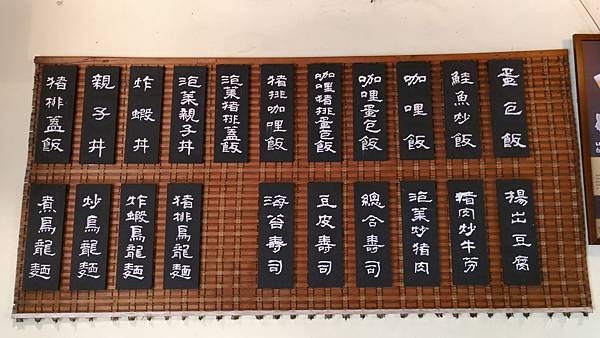 蛋包飯
鮭魚炒飯
咖哩飯
咖哩蛋包飯
咖哩豬排蛋包飯
豬排咖哩飯
泡菜豬排蓋飯
泡菜親子丼
炸蝦丼
親子丼
豬排蓋飯
揚出豆腐
豬肉炒牛蒡
泡菜炒豬肉
總合壽司
豆皮壽司
海苔壽司
豬排烏龍麵
炸蝦烏龍麵
炒烏龍麵
煮烏龍麵